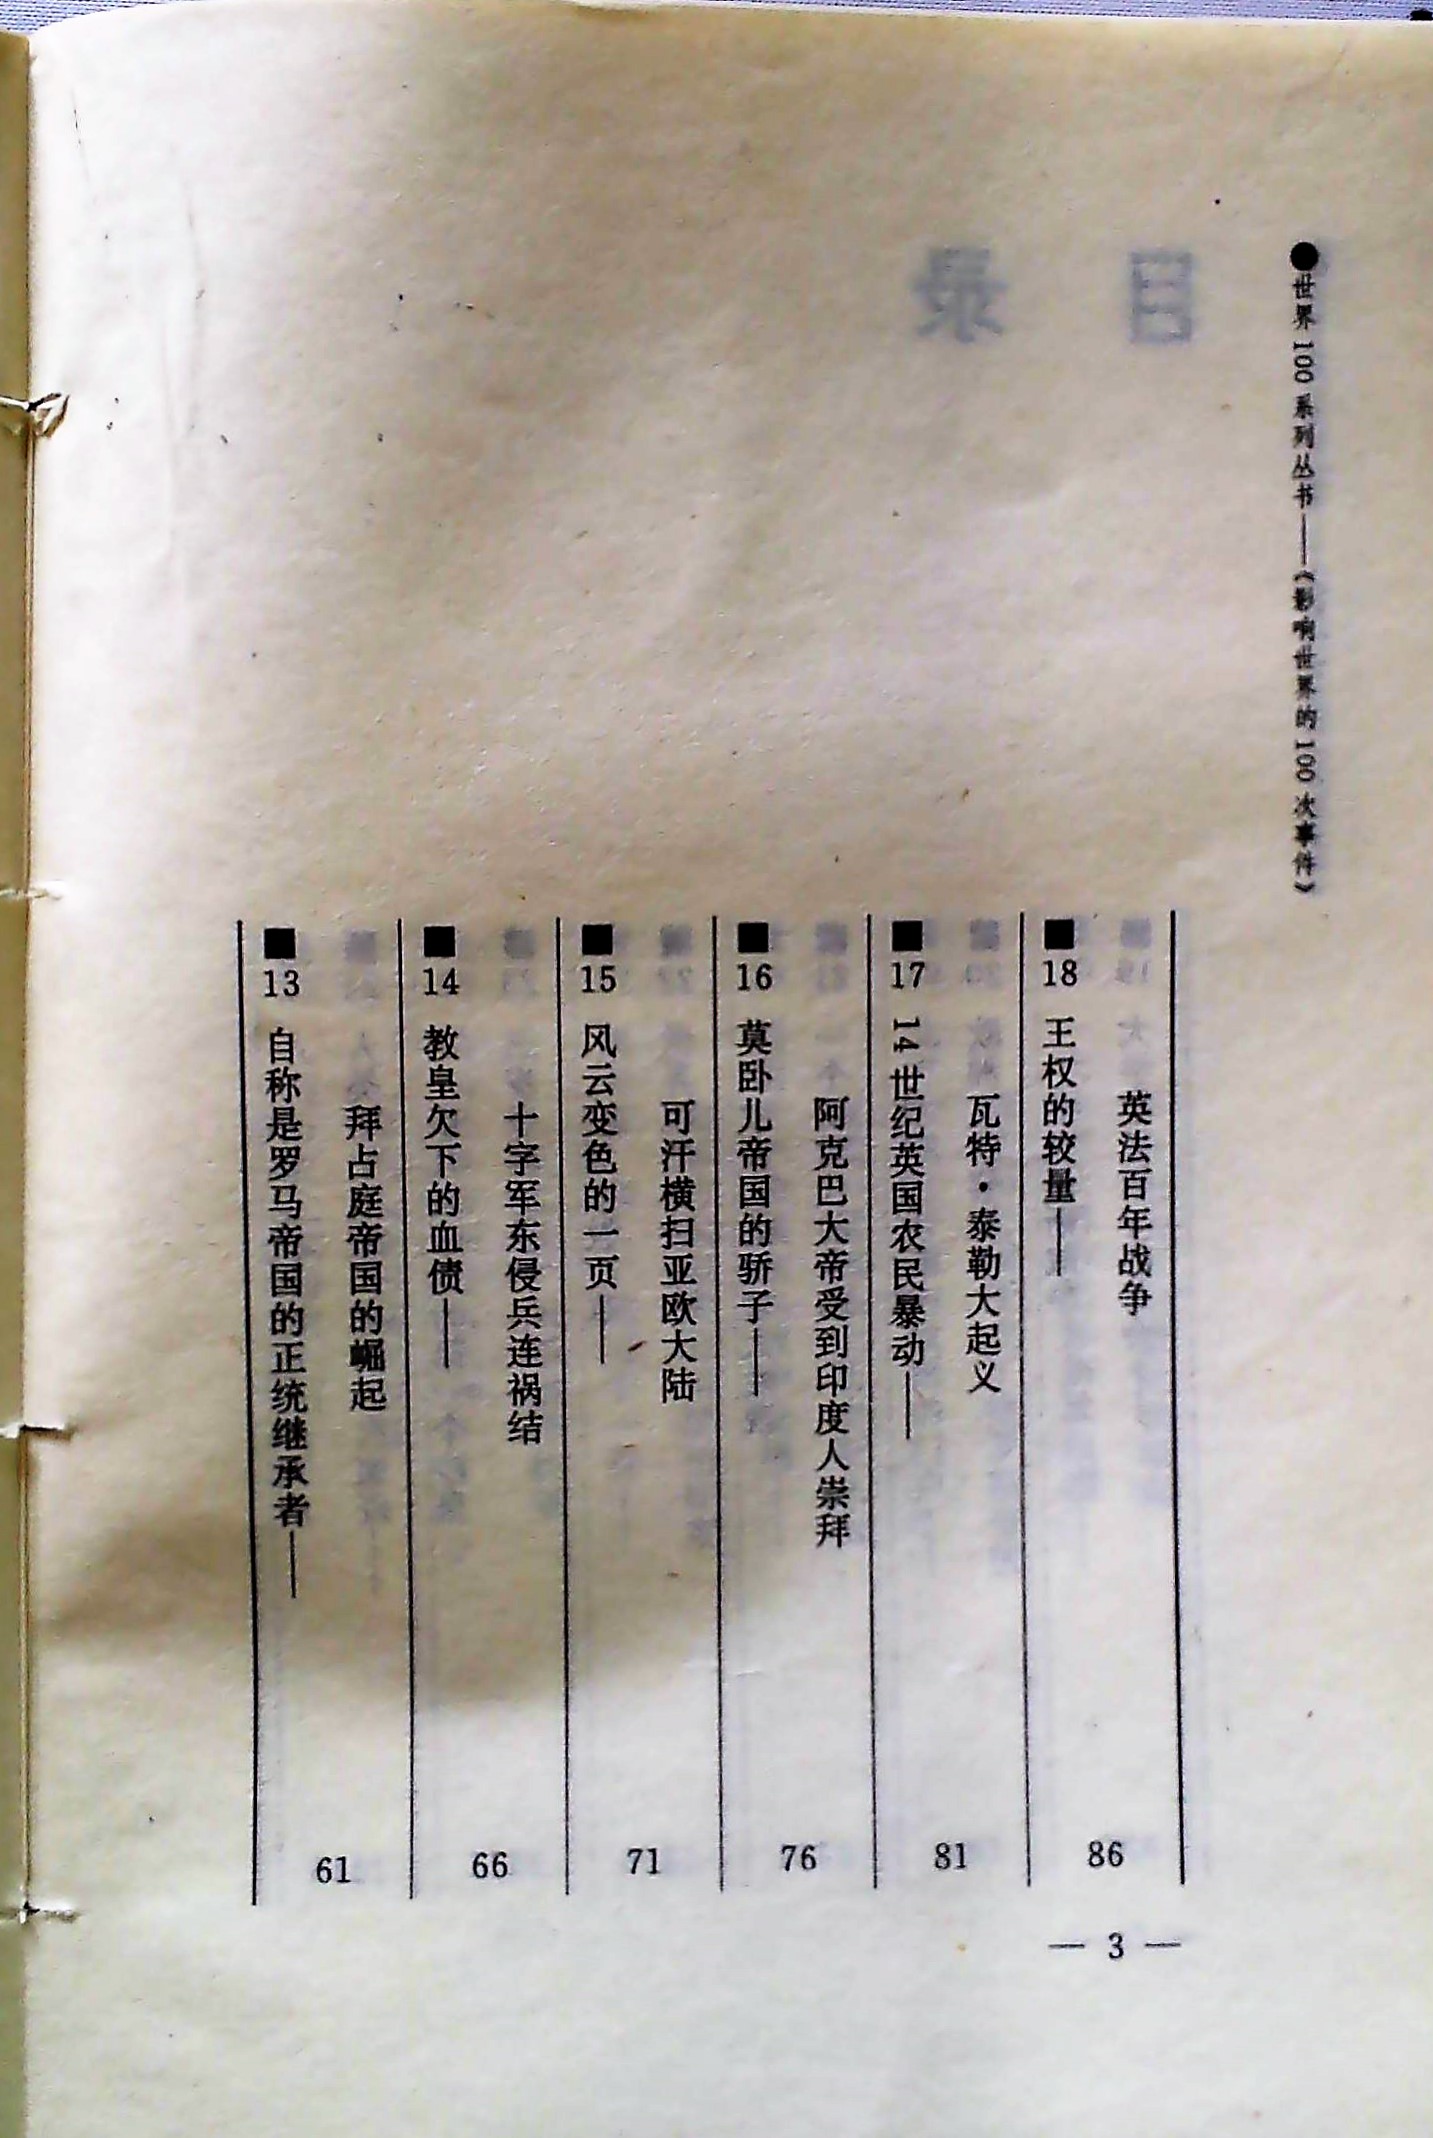 ●世界100系列丛书——《影响世界的100次事件》
■13 自称是罗马帝国的正统继承者——
拜占庭帝国的崛起
61
■14 教皇欠下的血债——
十字军东侵兵连祸结
66
■15 风云变色的一页——
可汗横扫亚欧大陆
71
■16 莫卧儿帝国的骄子——
阿克巴大帝受到印度人崇拜
76
■17 14世纪英国农民暴动——
瓦特·泰勒大起义
81
■18 王权的较量——
英法百年战争
86
— 3 —